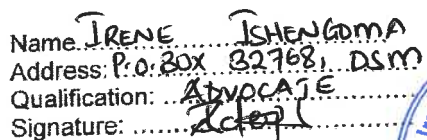 Name..IRENE ISHENGOMA
Address: P.O.BOX 32768, DSM
Qualification: ..ADVOCATE
Signature: ......